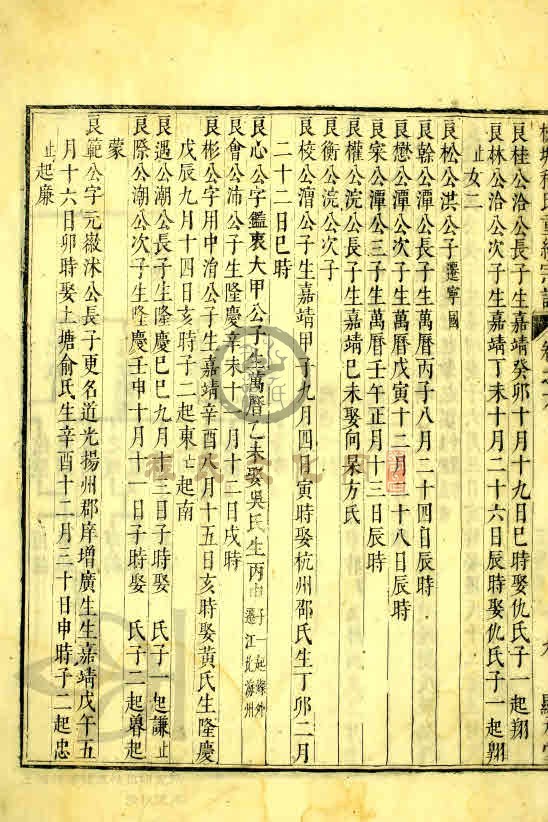 良桂公洽公長子生嘉靖癸卯十月十九日巳時娶仇氏子一起翔
良林公洽公次子生嘉靖丁未十月二十六日辰時娶仇氏子一起翱
止女二
良松公淇公子遷寧國
良榦公潭公長子生萬曆丙子八月二十四日辰時
良懋公潭公次子生萬曆戊寅十二月二十八日辰時
良宷公潭公三子生萬曆壬午正月十三日辰時
良權公浣公長子生嘉靖巳未娶向杲方氏
良衡公浣公次子
良校公漕公子生嘉靖甲子九月四日寅時娶杭州邵氏生丁卯二月
二十二日巳時
良心公字鑑衷大甲公子生萬曆乙未娶吳氏生丙申子一起 外遷江北海州
良會公沛公子生隆慶辛未十一月十二日戌時
良彬公字用中渻公子生嘉靖八月十五日亥時娶黃氏生隆慶
戊辰九月十四日亥時子二起東止起南
良遇公潮公長子生隆慶巳巳九月十三日子時娶 氏子一起謙止
良際公潮公次子生隆慶壬申十月十一日子時娶 氏子二起 起
蒙
良範公字元嶶沭公長子更名道光揚州郡庠增廣生生嘉靖戊午五
月十六日卯時娶上塘俞氏生辛酉十二月三十日申時子二起忠
止起廉